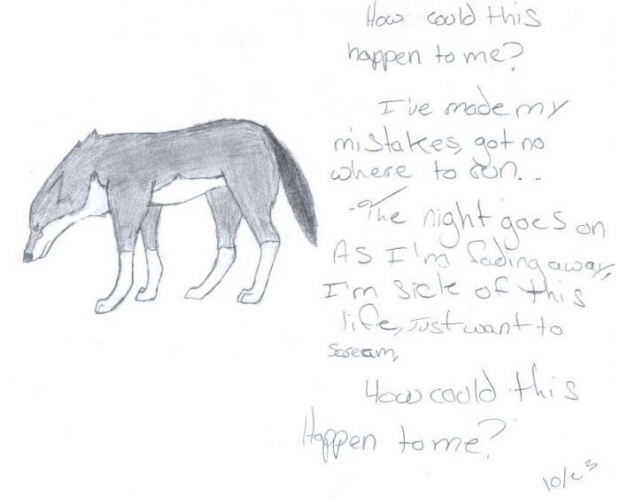 How could this
happen to me?
I've made my
mistakes, got no
where to run..
The night goes on
As I'm fading away,
I'm sick of this
life, Just want to
scream,
How could this
Happen to me?